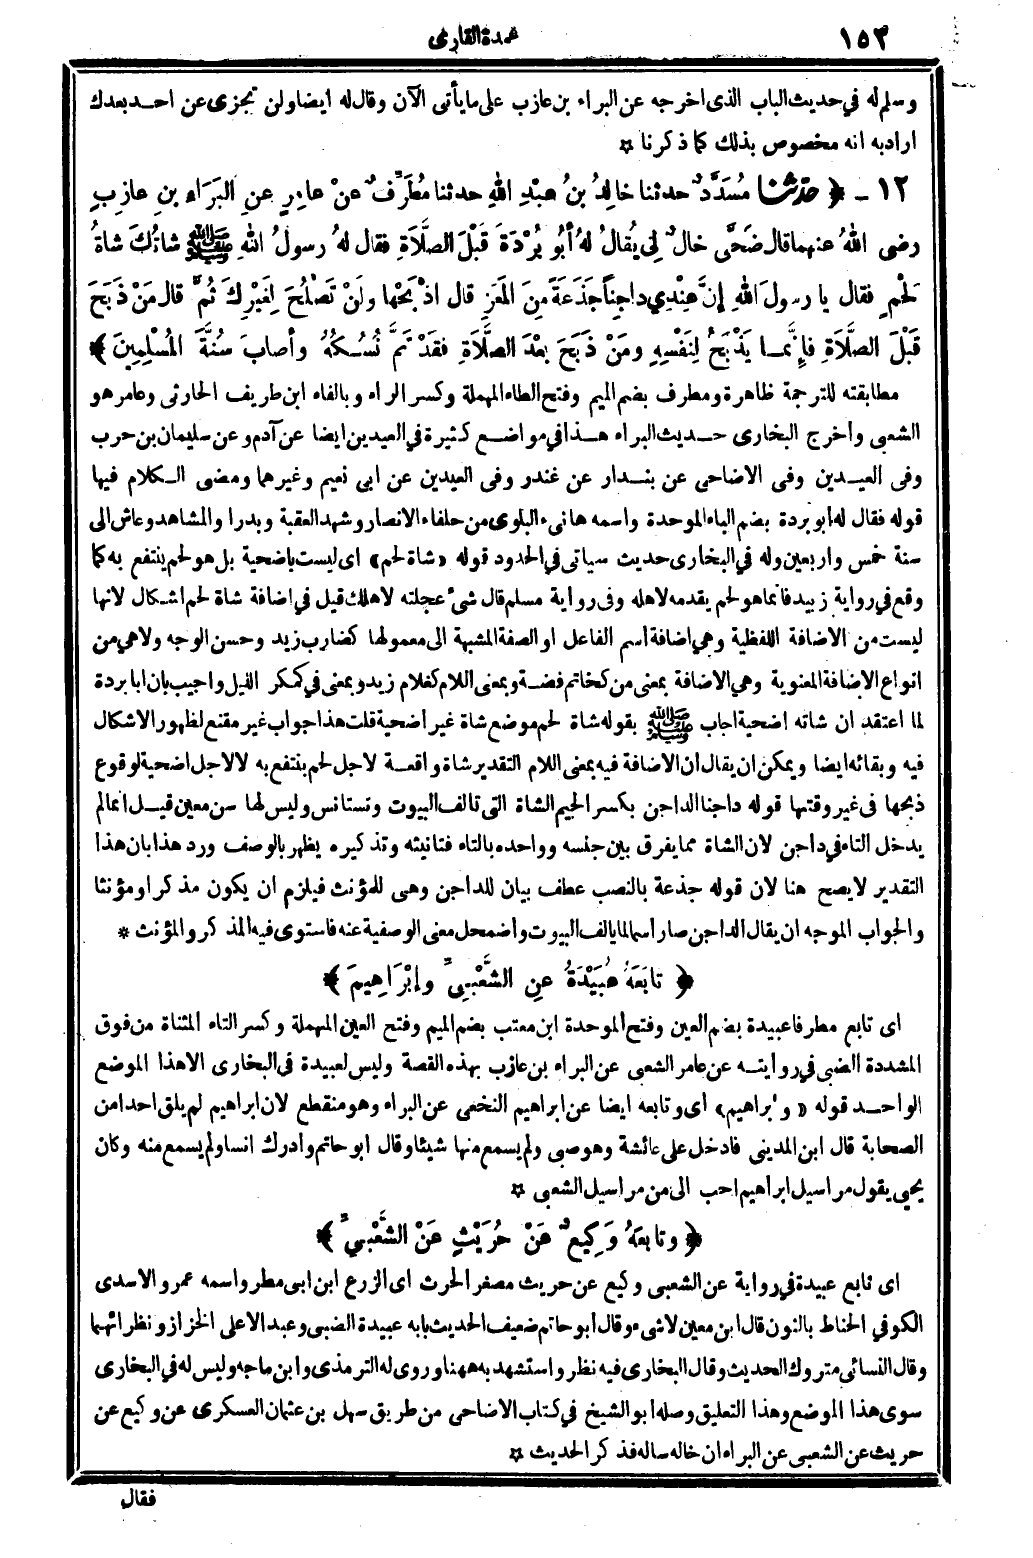 ١٥٣
عمدة القارى
وسلم له في حديث الباب الذى اخرجه عن البراء بن عازب على ما يأتى الآن وقال له ايضا ولن تجزى عن احد بعدك
اراد به انه مخصوص بذلك كما ذكرنا ☆
١٢ - ﴿ حدثنا مُسَدَّدٌ حدثنا خالِدُ بنُ عبْدِ اللهِ حدثنا مُطَرِّفٌ عنْ عامِرٍ عنِ البَرَاءِ بنِ عازِبٍ
رضى اللهُ عنهما قال ضَحَّى خالٌ لِي يُقالُ لهُ أبُو بُرْدَةَ قَبْلَ الصَّلَاةِ فقال لهُ رسولُ اللهِ ﷺ شاتُكَ شاةُ
لَحْمٍ فقال يا رسولَ اللهِ إنَّ عِنْدِي داجِناً جَذَعَةً مِنَ المَعَزِ قال اذْبَحْها ولَنْ تَصْلُحَ لِغَيْرِكَ ثُمَّ قال مَنْ ذَبَحَ
قَبْلَ الصَّلَاةِ فإِنَّمَا يَذْبَحُ لِنَفْسِهِ ومَنْ ذَبَحَ بعْدَ الصَّلَاةِ فقَدْ تَمَّ نُسُكُهُ وأصابَ سُنَّةَ المُسْلِمِينَ ﴾
مطابقته للترجمة ظاهرة ومطرف بضم الميم وفتح الطاء المهملة وكسر الراء وبالفاء ابن طريف الحارثى وعامر هو
الشعبى وأخرج البخارى حديث البراء هذا في مواضع كثيرة في العيدين ايضا عن آدم وعن سليمان بن حرب
وفى العيدين وفى الاضاحى عن بندار عن غندر وفى العيدين عن ابى نعيم وغيرهما ومضى الكلام فيها
قوله فقال له ابو بردة بضم الباء الموحدة واسمه هانىء البلوى من حلفاء الانصار وشهد العقبة وبدرا والمشاهد وعاش الى
سنة خمس واربعين وله في البخارى حديث سياتى في الحدود قوله «شاة لحم» اى ليست باضحية بل هو لحم ينتفع به كما
وقع في رواية زبيد فانما هو لحم يقدمه لاهله وفى رواية مسلم قال شىء عجلته لاهلك قيل في اضافة شاة لحم اشكال لانها
ليست من الاضافة اللفظية وهي اضافة اسم الفاعل او الصفة المشبهة الى معمولها كضارب زيد وحسن الوجه ولا هي من
انواع الاضافة المعنوية وهي الاضافة بمعنى من كخاتم فضة وبمعنى اللام كغلام زيد وبمعنى في كمكر الليل واجيب بان ابا بردة
لما اعتقد ان شاته اضحية اجاب ﷺ بقوله شاة لحم موضع شاة غير اضحية قلت هذا جواب غير مقنع لظهور الاشكال
فيه وبقائه ايضا ويمكن ان يقال ان الاضافة فيه بمعنى اللام التقدير شاة واقعة لاجل لحم ينتفع به لا لاجل اضحية لوقوع
ذبحها فى غير وقتها قوله داجنا الداجن بكسر الجيم الشاة التى تالف البيوت وتستانس وليس لها سن معين قيل انما لم
يدخل التاء في داجن لان الشاة مما يفرق بين جنسه وواحده بالتاء فتانيثه وتذكيره يظهر بالوصف ورد هذا بان هذا
التقدير لا يصح هنا لان قوله جذعة بالنصب عطف بيان للداجن وهى للمؤنث فيلزم ان يكون مذكرا ومؤنثا
والجواب الموجه ان يقال الداجن صار أسما لما يالف البيوت وأضمحل معنى الوصفية عنه فاستوى فيه المذكر والمؤنث *
﴿ تابَعَهُ عُبَيْدَةُ عنِ الشَّعْبِيِّ وإبْرَاهِيمَ ﴾
اى تابع مطرفا عبيدة بضم العين وفتح الموحدة ابن معتب بضم الميم وفتح العين المهملة وكسر التاء المثناة من فوق
المشددة الضبى في روايته عن عامر الشعبى عن البراء بن عازب بهذه القصة وليس لعبيدة فى البخارى الا هذا الموضع
الواحد قوله «وابراهيم» اى وتابعه ايضا عن ابراهيم النخعى عن البراء وهو منقطع لان ابراهيم لم يلق احدا من
الصحابة قال ابن المدينى فادخل على عائشة وهو صبى ولم يسمع منها شيئا وقال ابو حاتم وادرك انسا ولم يسمع منه وكان
يحيى يقول مراسيل ابراهيم احب الى من مراسيل الشعبى ☆
﴿ وتابَعَهُ وَكِيعٌ عَنْ حُرَيْثٍ عَنْ الشَّعْبِيِّ ﴾
اى تابع عبيدة في رواية عن الشعبى وكيع عن حريث مصغر الحرث اى الزرع ابن ابى مطر واسمه عمرو الاسدى
الكوفي الحناط بالنون قال ابن معين لا شىء وقال أبو حاتم ضعيف الحديث بابه عبيدة الضبى وعبد الاعلى الخزاز ونظرائهما
وقال النسائى متروك الحديث وقال البخارى فيه نظر واستشهد به ههنا وروى له الترمذى وابن ماجه وليس له في البخارى
سوى هذا الموضع وهذا التعليق وصله ابو الشيخ في كتاب الاضاحى من طريق سهل بن عثمان العسكرى عن وكيع عن
حريث عن الشعبى عن البراء ان خاله ساله فذكر الحديث ☆
فقال